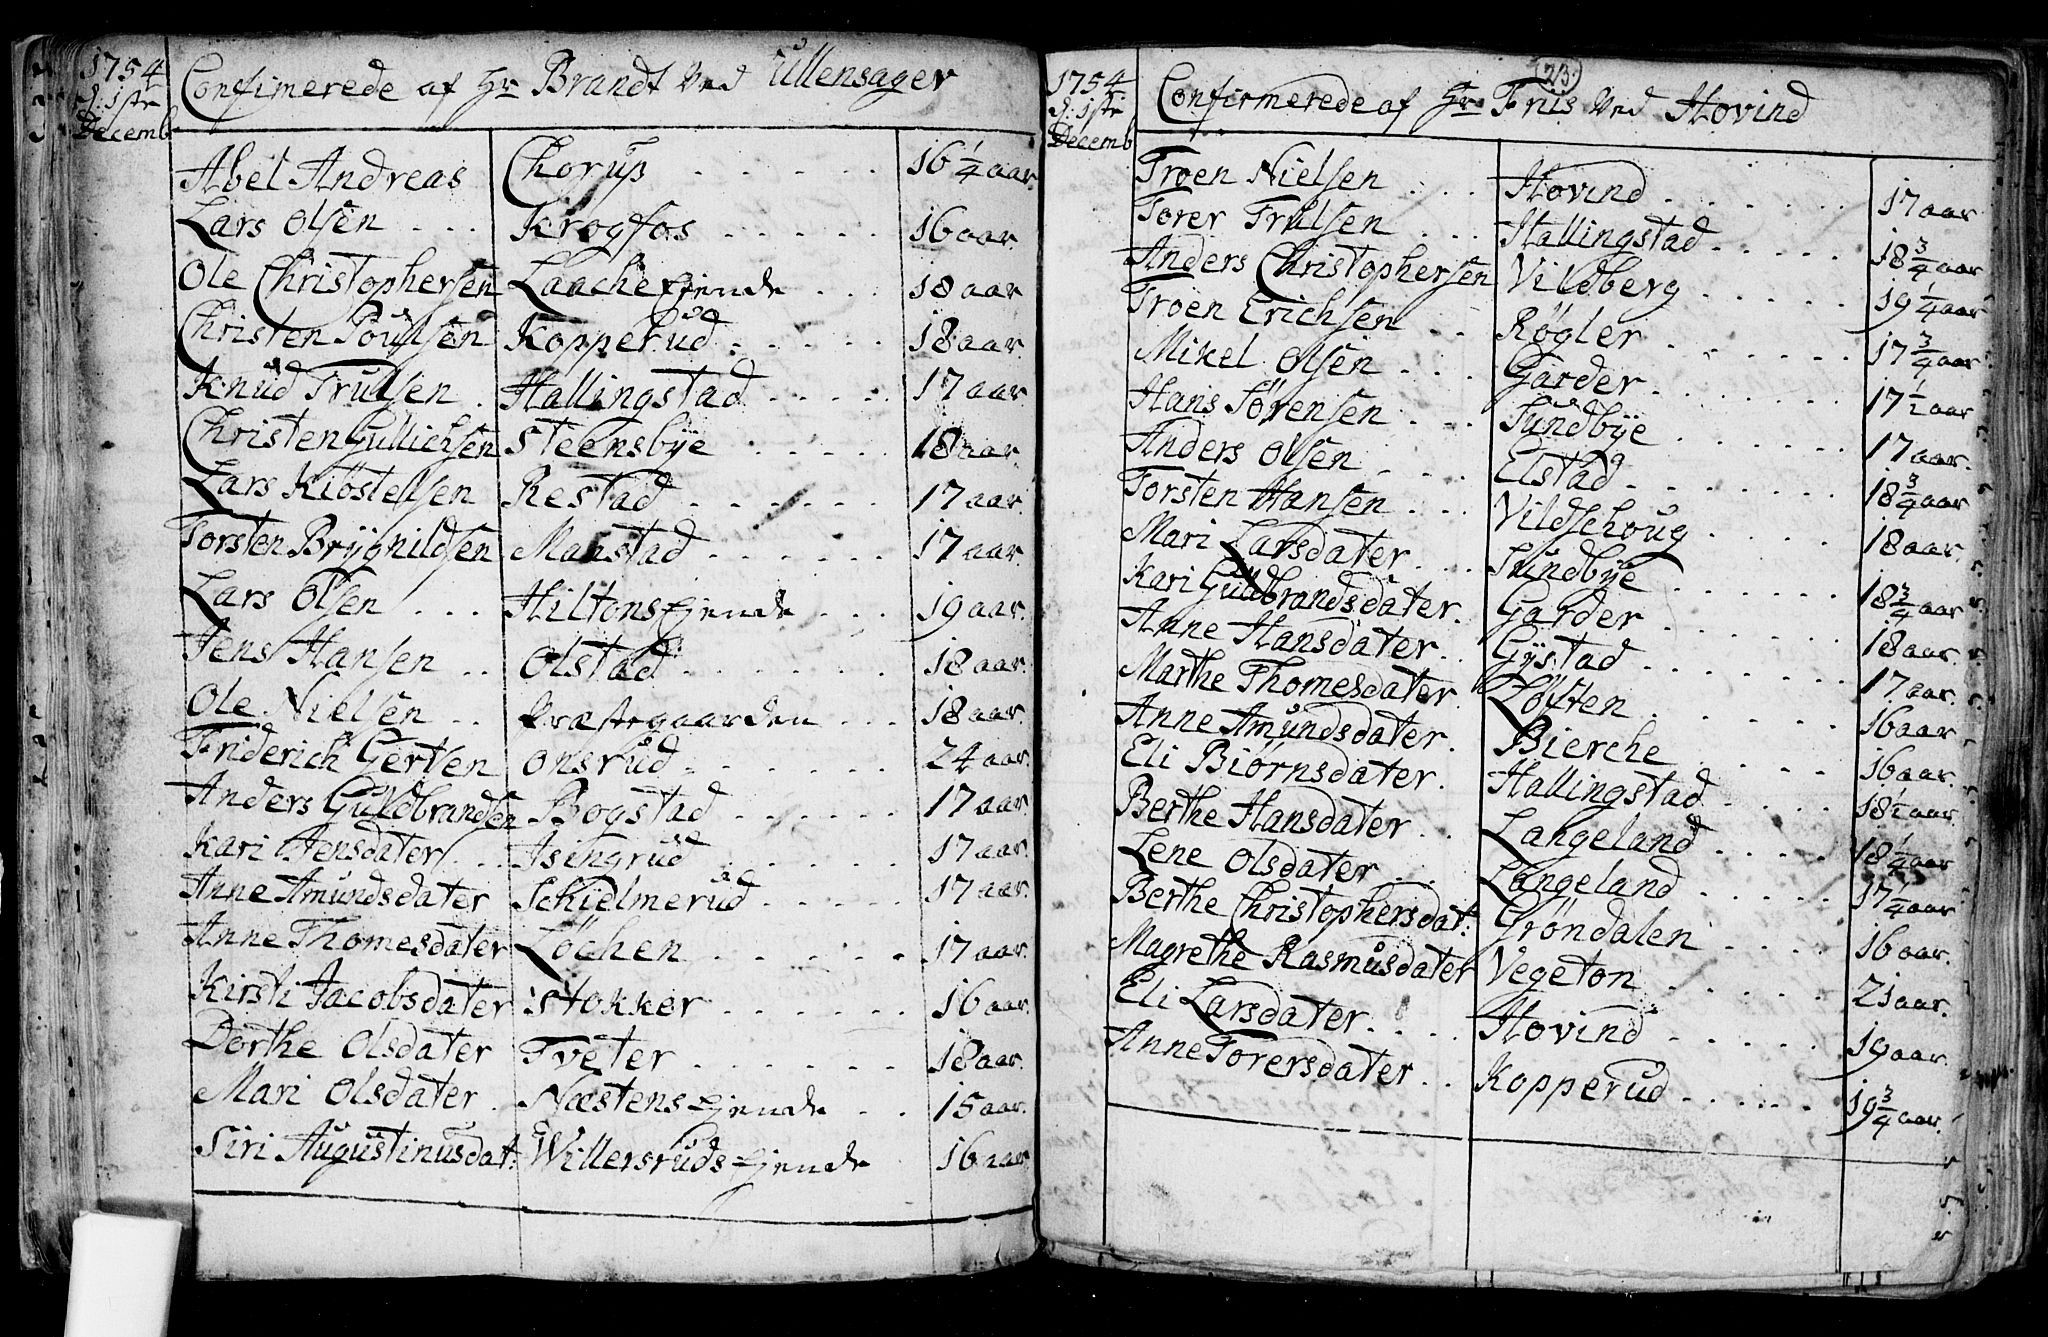 1754
d: 1ste
Decemb
Confimerede af Hr Brandt ved Ullensager
Abel Andreas Chorup 16 1/4 aar
Lars Olsen Krogfos 16 aar
Ole Christophersen Laache Ejende 18 aar
Christen Poulsen Kopperud 18 aar
Knud Trulsen Hallingstad 17 aar
Christen Gullichsen Steensbÿe 18 aar
Lars Kiöstelsen Restad 17 aar
Torsten Brÿgnildsen Manstad 17 aar
Lars Olsen Hiltons Ejende 19 aar
Jens Hansen Olstad 18 aar
Ole Nielsen Præstegaarden 18 aar
Friderich Gertsen Onsrud 24 aar
Anders Guldbrandsen Bogstad 17 aar
Kari Jensdater Isingrud 17 aar
Anne Amundsdater Schielmerud 17 aar
Anne Thomesdater Löchen 17 aar
Kirsti Jacobsdater Stokker 16 aar
Dorthe Olsdater Tveter 18 aar
Mari Olsdater Næstens Ejende 15 aar
Siri Augustinusdat: Willersruds Ejende 16 aar
23.
1754
d: 1ste
Decemb
Confirmerede af Hr Friis ved Hovind
Troen Nielsen Hovind 17 aar
Torer Trulsen Hallingstad 18 3/4 aar
Anders Christophersen Vildberg 19 1/4 aar
Troen Erichsen Rögler 17 3/4 aar
Mikel Olsen Garder 17 1/2 aar
Hans Sörensen Sundbÿe 17 aar
Anders Olsen Elstad 18 3/4 aar
Torsten Hansen Vildsehoug 18 aar
Mari Larsdater Sundbÿe 18 3/4 aar
Kari Gudbrandsdater Garder 18 aar
Anne Hansdater Gÿstad 17 aar
Marthe Thomesdater Löften 16 aar
Anne Amundsdater Bierche 16 aar
Eli Biörnsdater Hallingstad 18 1/2 aar
Berthe Hansdater Langeland 18 1/4 aar
Lene Olsdater Langeland 17 1/4 aar
Berthe Christophersdat: Gröndalen 16 aar
Magrethe Rasmusdater Vegeton 21 aar
Eli Larsdater Hovind 19 aar
Anne Torersdater Kopperud 19 3/4 aar